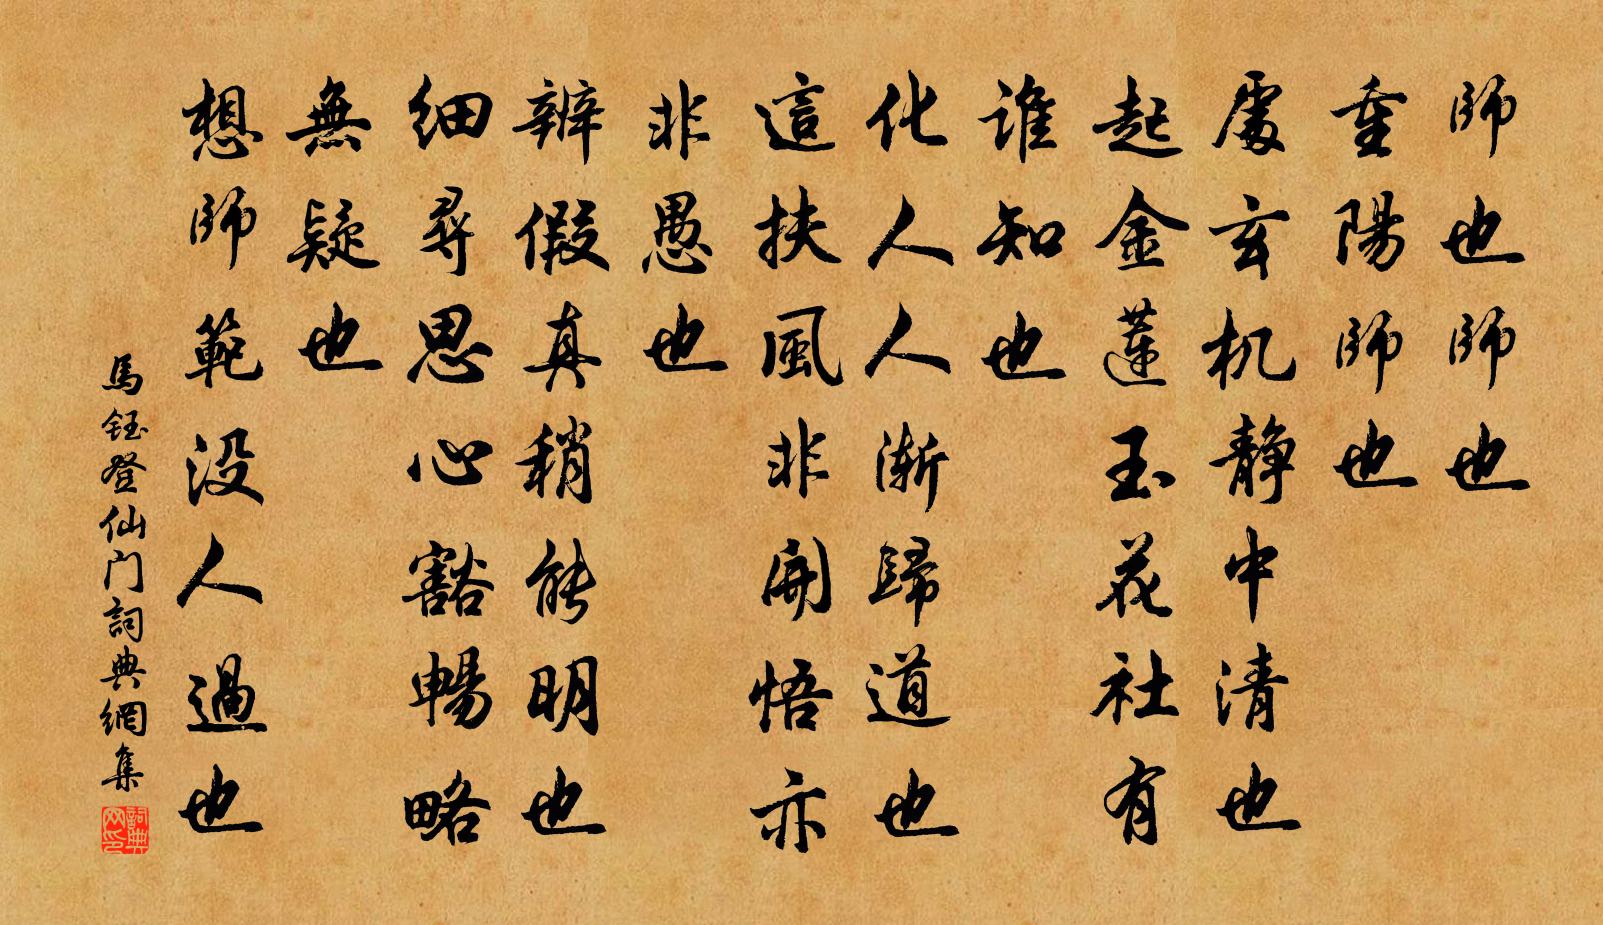 師也師也
重陽師也
處玄机靜中清也
起金蓮玉花社有
誰知也
化人人漸歸道也
這扶風非開悟亦
非愚也
辨假真稍能明也
細尋思心豁暢略
無疑也
想師範没人過也
馬鈺登仙门詞典網集
詞典网印